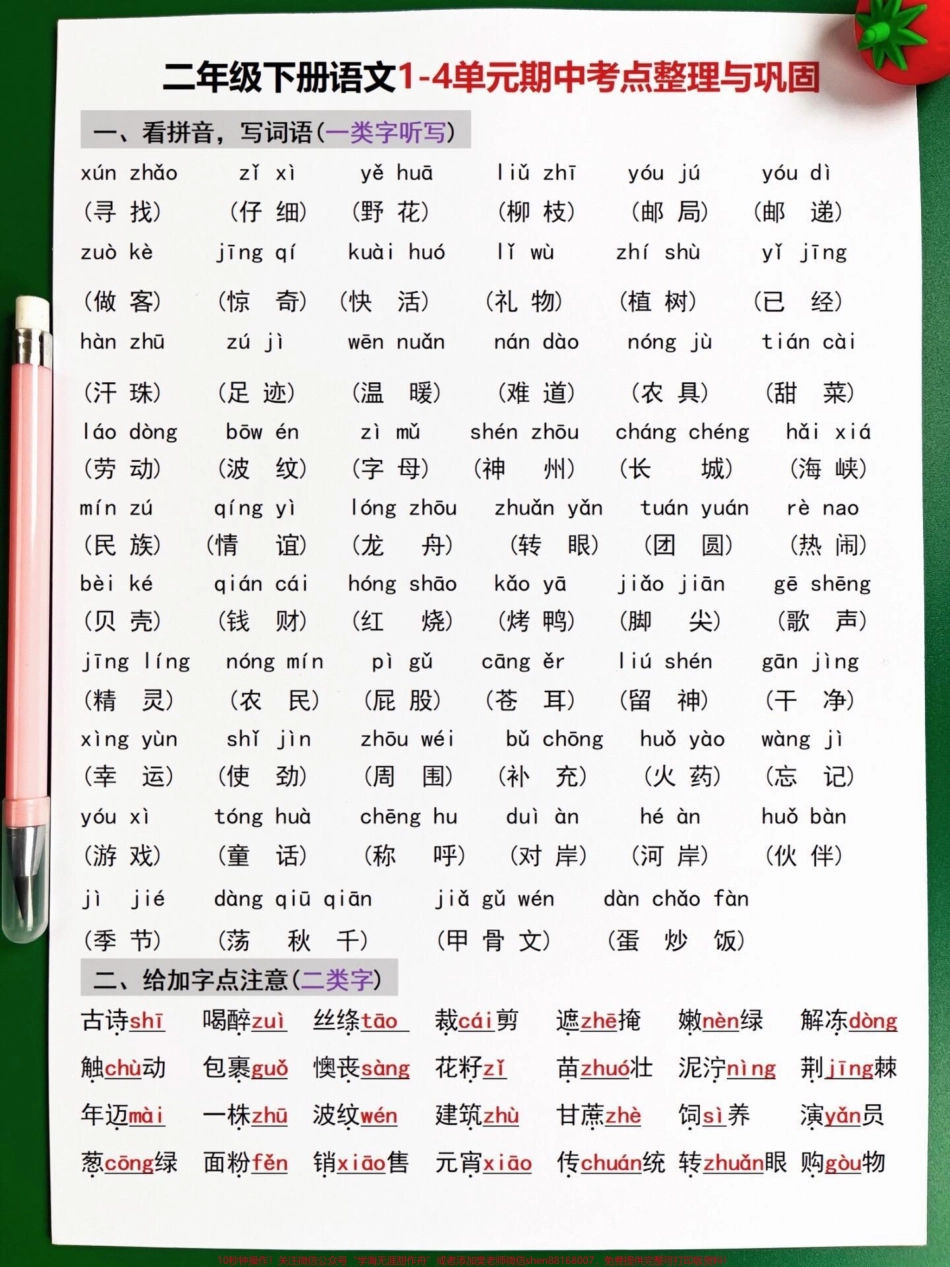 二年级下册语文1-4单元期中考点整理与巩固
一、看拼音，写词语(一类字听写)
xún zhǎo zǐ xì yě huā liǔ zhī yóu jú yóu dì
(寻 找) (仔 细) (野 花) (柳 枝) (邮 局) (邮 递)
zuò kè jīng qí kuài huó lǐ wù zhí shù yǐ jīng
(做 客) (惊 奇) (快 活) (礼 物) (植 树) (已 经)
hàn zhū zú jì wēn nuǎn nán dào nóng jù tián cài
(汗 珠) (足 迹) (温 暖) (难 道) (农 具) (甜 菜)
láo dòng bōw én zì mǔ shén zhōu cháng chéng hǎi xiá
(劳 动) (波 纹) (字 母) (神 州) (长 城) (海 峡)
mín zú qíng yì lóng zhōu zhuǎn yǎn tuán yuán rè nao
(民 族) (情 谊) (龙 舟) (转 眼) (团 圆) (热 闹)
bèi ké qián cái hóng shāo kǎo yā jiǎo jiān gē shēng
(贝 壳) (钱 财) (红 烧) (烤 鸭) (脚 尖) (歌 声)
jīng líng nóng mín pì gǔ cāng ěr liú shén gān jìng
(精 灵) (农 民) (屁 股) (苍 耳) (留 神) (干 净)
xìng yùn shǐ jìn zhōu wéi bǔ chōng huǒ yào wàng jì
(幸 运) (使 劲) (周 围) (补 充) (火 药) (忘 记)
yóu xì tóng huà chēng hu duì àn hé àn huǒ bàn
(游 戏) (童 话) (称 呼) (对 岸) (河 岸) (伙 伴)
jì jié dàng qiū qiān jiǎ gǔ wén dàn chǎo fàn
(季 节) (荡 秋 千) (甲 骨 文) (蛋 炒 饭)
二、给加字点注意(二类字)
古诗shī 喝醉zuì 丝绦tāo 裁cái剪 遮zhē掩 嫩nèn绿 解冻dòng
触chù动 包裹guǒ 懊丧sàng 花籽zǐ 苗zhuó壮 泥泞nìng 荆jīng棘
年迈mài 一株zhū 波纹wén 建筑zhù 甘蔗zhè 饲sì养 演yǎn员
葱cōng绿 面粉fěn 销xiāo售 元宵xiāo 传chuán统 转zhuǎn眼 购gòu物